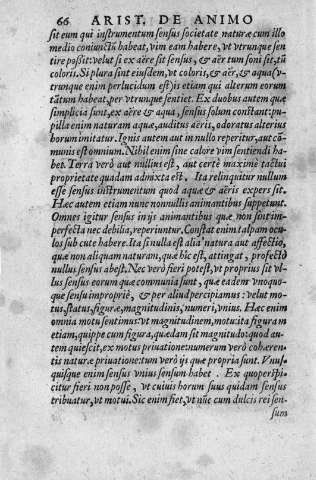 66 ARIST. DE ANIMO
sit eum qui instrumentum sensus societate naturæ cum illo
medio coniunctũ habeat, vim eam habere, vt vtrunque sen
tire possit: velut si ex aëre sit sensus, & aër tum soni sit, tũ
coloris. Si plura sint eiusdem, vt coloris, & aër, & aqua (v-
trunque enim perlucidum est) is etiam qui alterum eorum
tãtum habeat, per vtrunque sentiet. Ex duobus autem quæ
simplicia sunt, ex aëre & aqua, sensus solum constant: pu-
pilla enim naturam aquæ, auditus aëris, odoratus alterius
horum imitatur. Ignis autem aut in nullo reperitur, aut cõ-
munis est omnium. Nihil enim sine calore vim sentiendi ha-
bet. Terra verò aut nullius est, aut certè maximè tactui
proprietate quadam admixta est. Ita relinquitur nullum
esse sensus instrumentum quod aquæ & aëris expers sit.
Hæc autem etiam nunc nonnullis animantibus suppetunt.
Omnes igitur sensus in ijs animantibus quæ non sint im-
perfecta nec debilia, reperiuntur. Constat enim talpam ocu-
los sub cute habere. Ita si nulla est alia natura aut affectio,
quæ non aliquam naturam, quæ hic est, attingat, profectò
nullus sensus abest. Nec verò fieri potest, vt proprius sit vl-
lus sensus eorum quæ communia sunt, quæ eadem vnoquo-
que sensu impropriè, & per aliud percipiamus: velut mo-
tus, status, figuræ, magnitudinis, numeri, vnius. Hæc enim
omnia motu sentimus: vt magnitudinem, motu: ita figuram
etiam, quippe cum figura, quædam sit magnitudo: quod au-
tem quiescit, ex motus priuatione: numerum verò cohæren-
tis naturæ priuatione: tum verò ijs quæ propria sunt. Vnus-
quisque enim sensus vnius sensum habet. Ex quo perspi-
citur fieri non posse, vt cuiuis horum suus quidam sensus
tribuatur, vt motui. Sic enim fiet, vt nũc cum dulcis rei sen-
sum